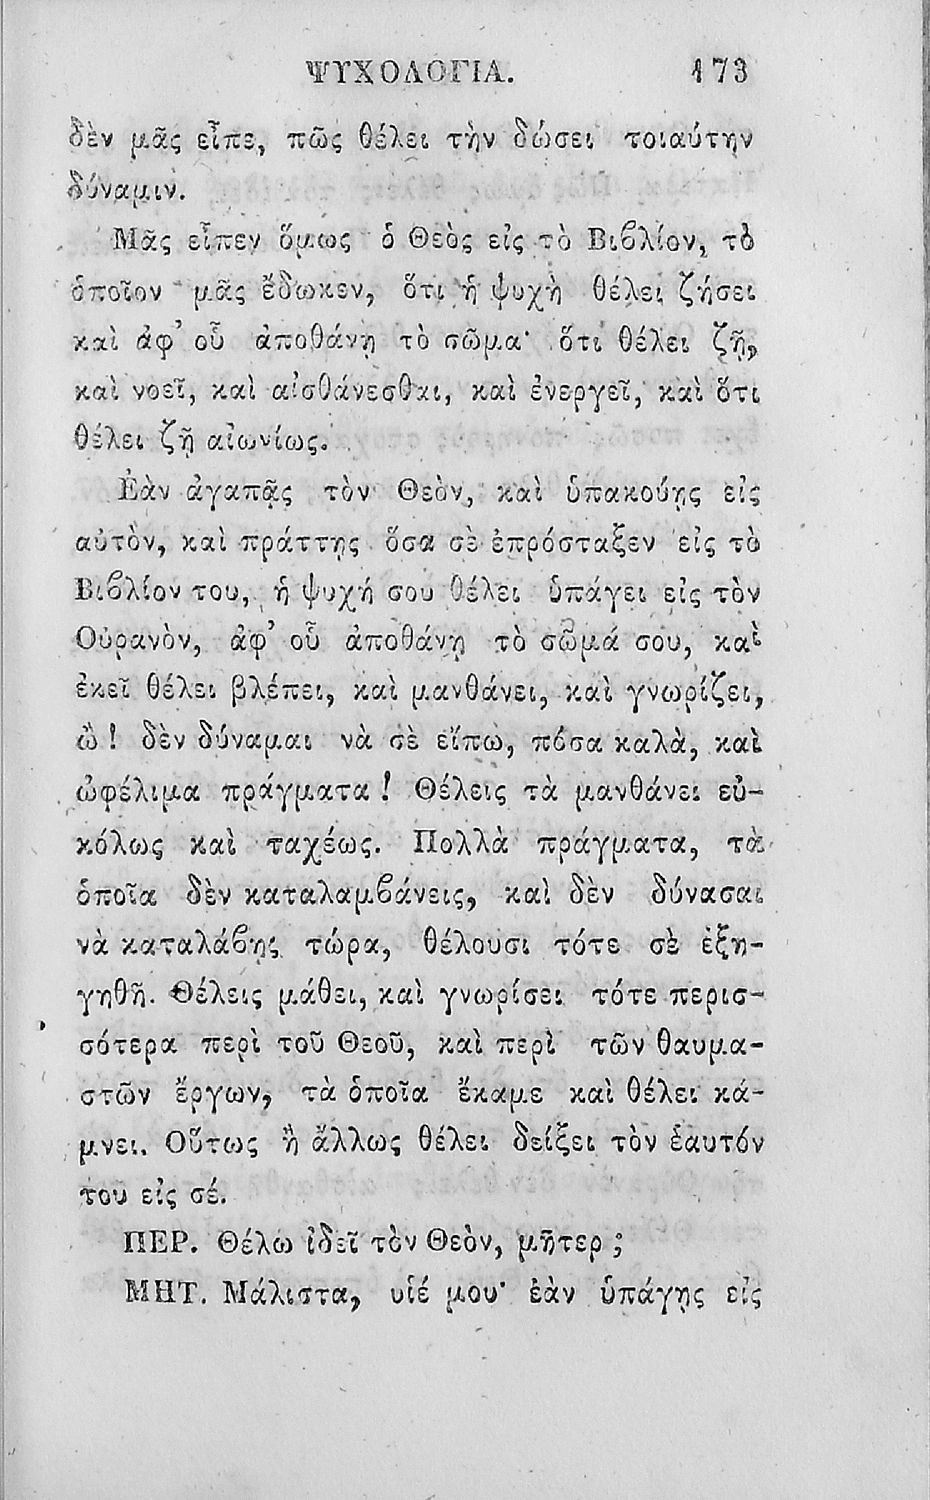 ΨΥΧΟΛΟΓΙΑ. 173
δὲν μᾶς εἶπε, πῶς θέλει τὴν δώσει τοιαύτην
δύναμιν.
Μᾶς εἶπεν ὅμως ὁ Θεὸς εἰς τὸ Βιϐλίον, τὸ
ὁποῖον μᾶς ἔδωκεν, ὅτι ἡ ψυχὴ θέλει ζήσει
καὶ ἀφ’ οὗ ἀποθάνῃ τὸ σῶμα· ὅτι θέλει ζῇ,
καὶ νοεῖ, καὶ αἰσθάνεσθαι, καὶ ἐνεργεῖ, καὶ ὅτι
θέλει ζῇ αἰωνίως.
Ἐὰν ἀγαπᾷς τὸν Θεὸν, καὶ ὑπακούῃς εἰς
αὐτὸν, καὶ πράττῃς ὅσα σὲ ἐπρόσταξεν εἰς τὸ
Βιϐλίον του, ἡ ψυχή σου θέλει ὑπάγει εἰς τὸν
Οὐρανὸν, ἀφ’ οὗ ἀποθάνῃ τὸ σῶμά σου, καὶ
ἐκεῖ θέλει βλέπει, καὶ μανθάνει, καὶ γνωρίζει,
ὢ! δὲν δύναμαι νὰ σὲ εἴπω, πόσα καλὰ, καὶ
ὠφέλιμα πράγματα! Θέλεις τὰ μανθάνει εὐ-
κόλως καὶ ταχέως. Πολλὰ πράγματα, τὰ
ὁποῖα δὲν καταλαμϐάνεις, καὶ δὲν δύνασαι
νὰ καταλάϐῃς τώρα, θέλουσι τότε σὲ ἐξη-
γηθῆ. Θέλεις μάθει, καὶ γνωρίσει τότε περισ-
σότερα περὶ τοῦ Θεοῦ, καὶ περὶ τῶν θαυμα-
στῶν ἔργων, τὰ ὁποῖα ἔκαμε καὶ θέλει κά-
μνει. Οὕτως ἢ ἄλλως θέλει δείξει τὸν ἑαυτόν
του εἰς σέ.
ΠΕΡ. Θέλω ἰδεῖ τὸν Θεὸν, μῆτερ;
ΜΗΤ. Μάλιστα, υἱέ μου· ἐὰν ὑπάγῃς εἰς